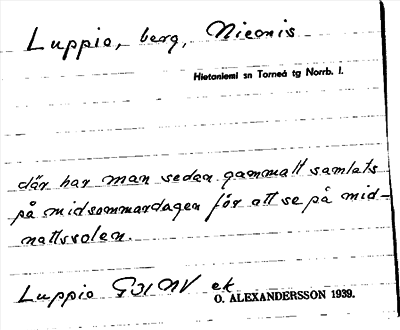 Luppio, berg, Nieonis
Hietaniemi sn Torneå tg Norrb. l.
där har man sedan gammalt samlats
på midsommardagen för att se på mid-
nattssolen.
Luppio G31 NV ek
O. ALEXANDERSSON 1939.